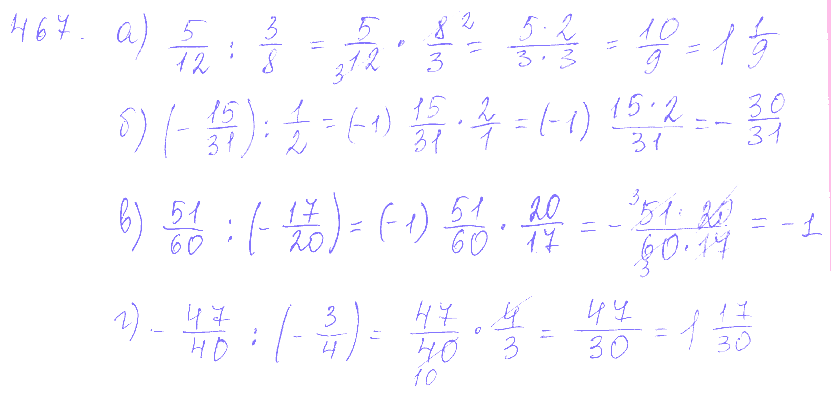 467. а) 5/12 : 3/8 = 5/12 3 · 8/3 2 = 5·2/3·3 = 10/9 = 1 1/9
б) (- 15/31) : 1/2 = (-1) 15/31 · 2/1 = (-1) 15·2/31 = - 30/31
в) 51/60 : (- 17/20) = (-1) 51/60 · 20/17 = - 3 51·20/60·17 3 = -1
г) - 47/40 : (- 3/4) = 47/40 10 · 4/3 = 47/30 = 1 17/30